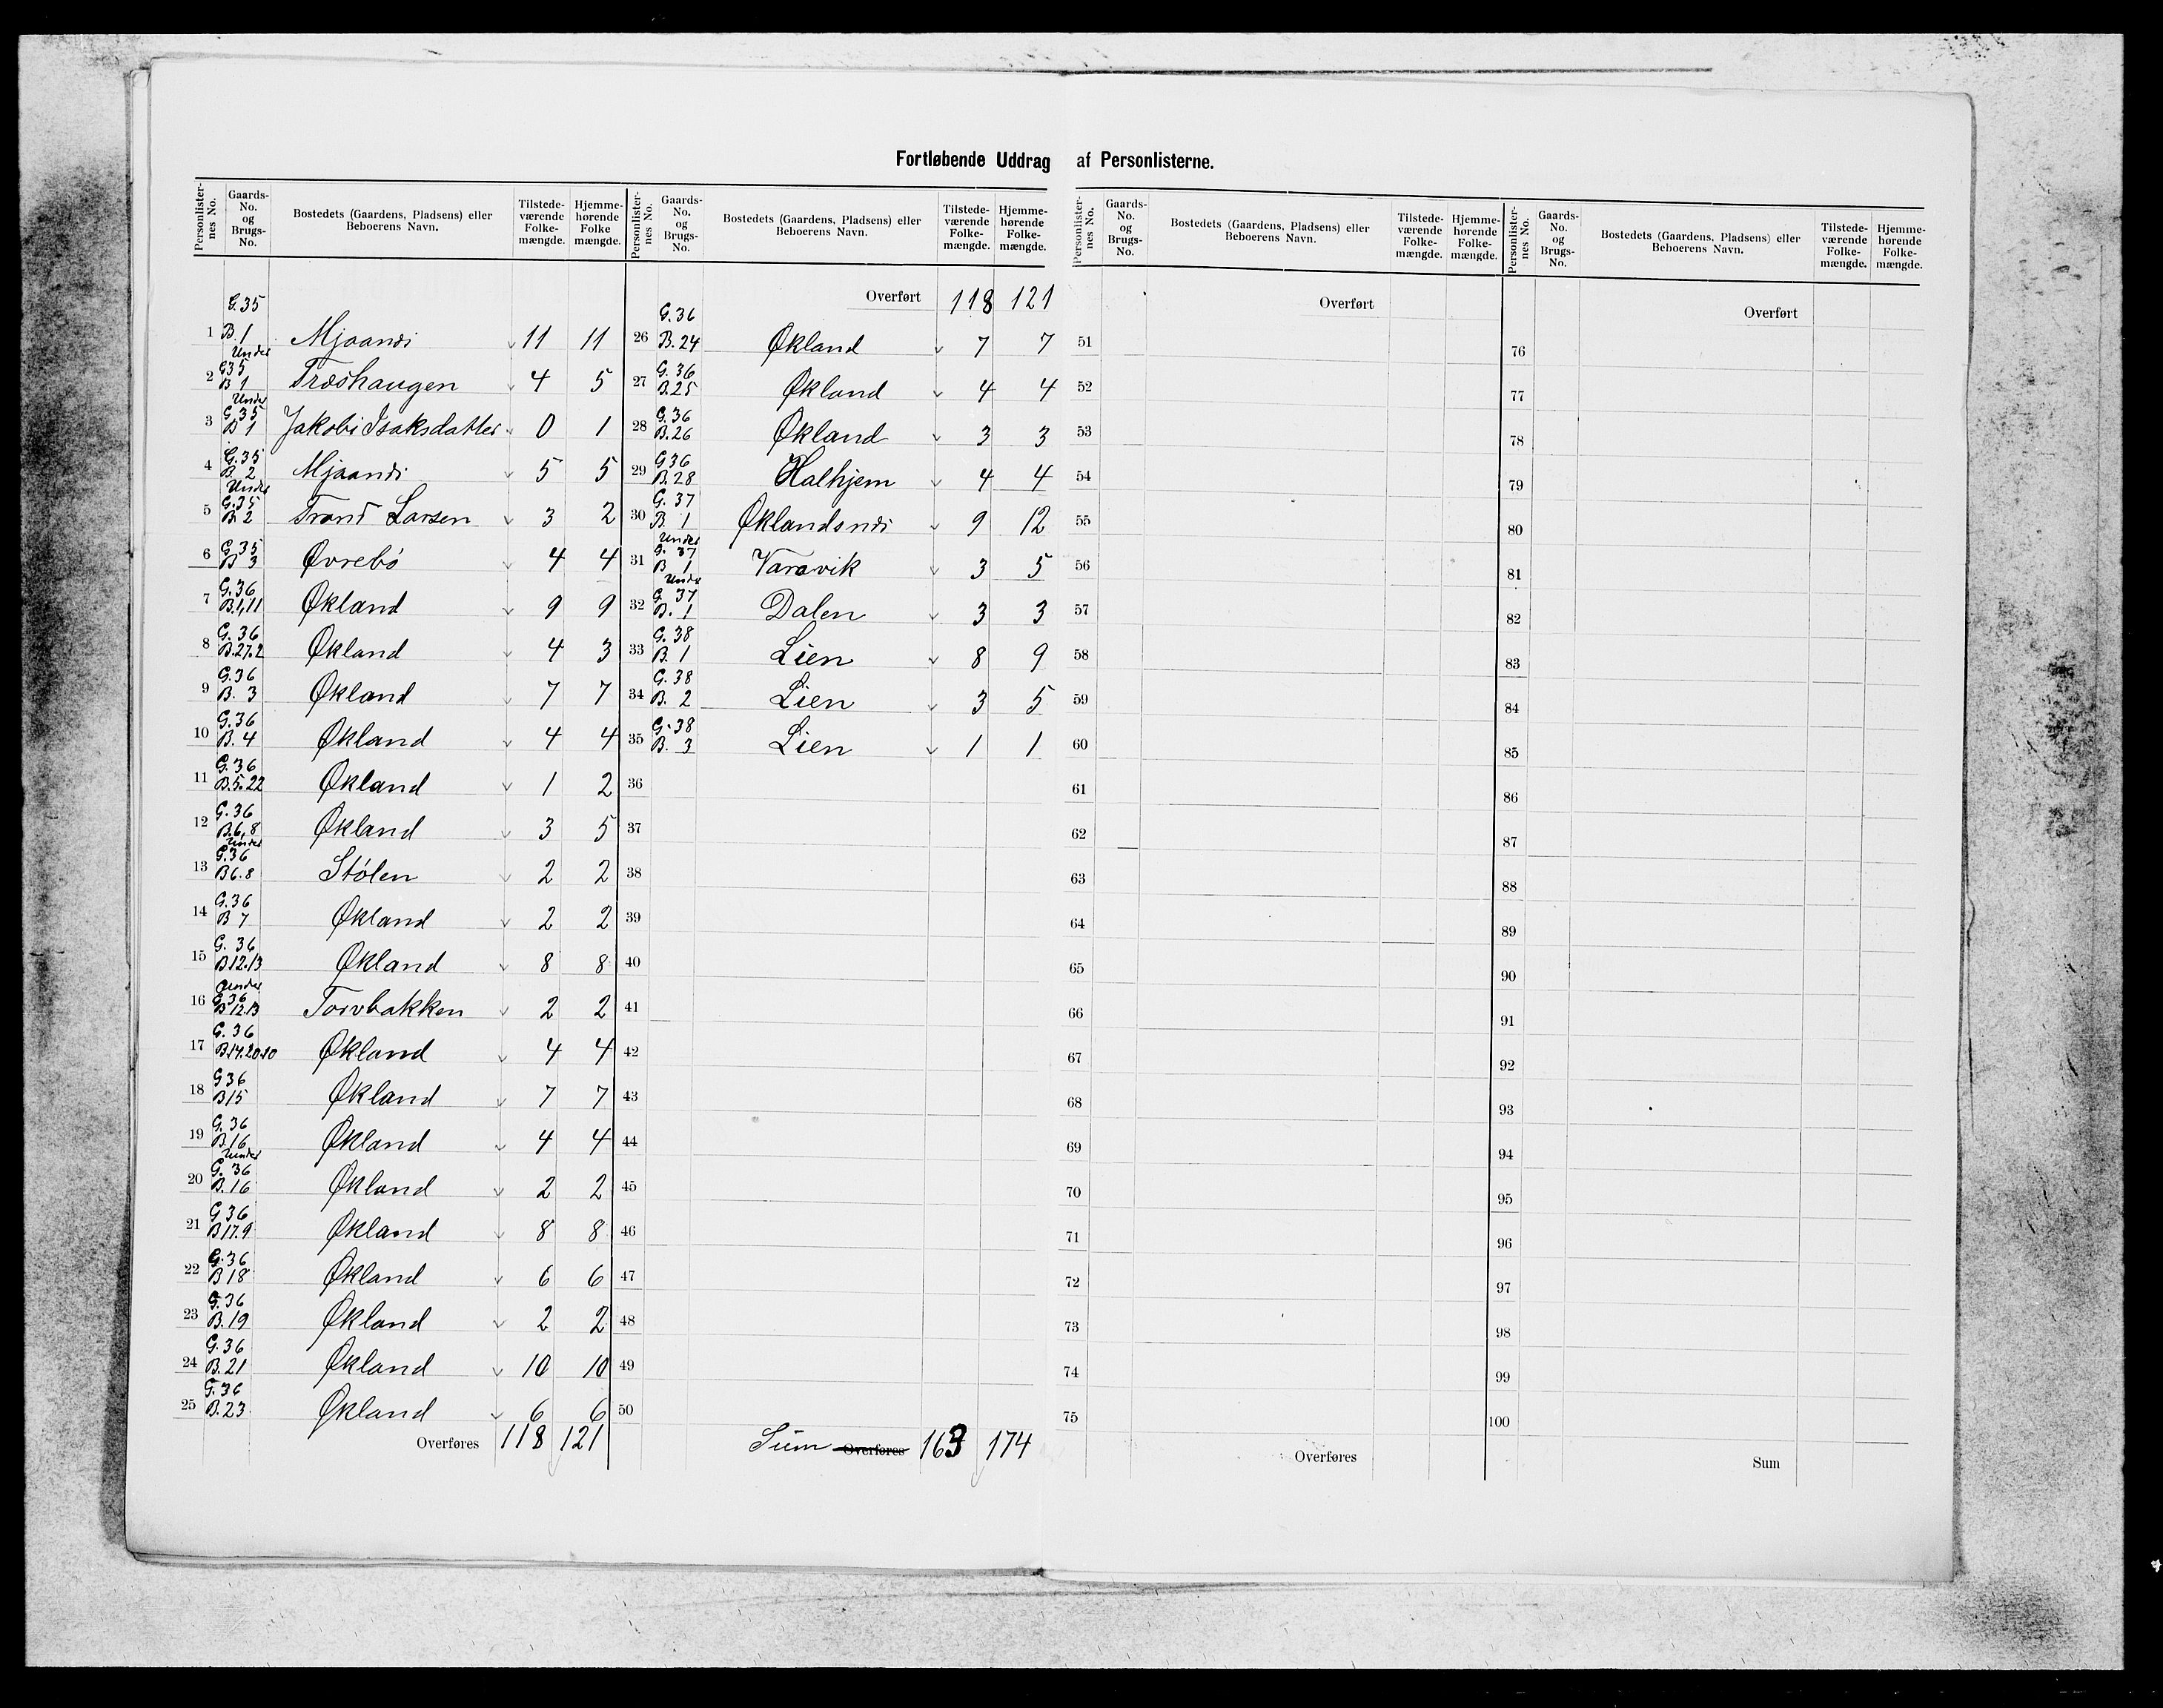 Fortløbende Uddrag af Personlisterne.
Personlisternes No. Gaards-No. og Brugs-No. Bostedets (Gaardens, Pladsens) eller Beboerens Navn. Tilstedeværende Folkemængde. Hjemmehørende Folkemængde.
1 G.35 B.1 Mjaanæs 11 11
2 Under G35 B1 Træshaugen 4 5
3 Under G.35 B1 Jakobi Isaksdatter 0 1
4 G.35 B.2 Mjaanæs 5 5
5 Under G.35 B.2 Trond Larsen 3 2
6 G.35 B 3 Øvrebø 4 4
7 G.36 B.1,11 Økland 9 9
8 G.36 B.27.2 Økland 4 3
9 G.36 B. 3 Økland 7 7
10 G.36 B.4 Økland 4 4
11 G.36 B.5.22 Økland 1 2
12 G.36 B.6,8 Økland 3 5
13 Under G.36 B6.8 Stølen 2 2
14 G.36 B 7 Økland 2 2
15 G.36 B12.13 Økland 8 8
16 Under G.36 B12.13 Torvbakken 2 2
17 G.36 B.14.20.10 Økland 4 4
18 G36 B15 Økland 7 7
19 G.36 B.16 Økland 4 4
20 Under G.36 B.16 Økland 2 2
21 G 36 B17.9 Økland 8 8
22 G.36 B18 Økland 6 6
23 G.36 B.19 Økland 2 2
24 G.36 B.21 Økland 10 10
25 G.36 B.23 Økland 6 6
Overføres 118 121
Personlisternes No. Gaards-No. og Brugs-No. Bostedets (Gaardens, Pladsens) eller Beboerens Navn. Tilstedeværende Folkemængde. Hjemmehørende Folkemængde.
Overført 118 121
26 G.36 B.24 Økland 7 7
27 G.36 B.25 Økland 4 4
28 G.36 B.26 Økland 3 3
29 G36 B.28 Halhjem 4 4
30 G.37 B.1 Øklandsnæs 9 12
31 Under G.37 B 1 Varavik 3 5
32 Under G.37 B.1 Dalen 3 3
33 G.38 B.1 Lien 8 9
34 G.38 B.2 Lien 3 5
35 G.38 B.3 Lien 1 1
36
37
38
39
40
41
42
43
44
45
46
47
48
49
50
Sum Overføres 163 174
Personlisternes No. Gaards-No. og Brugs-No. Bostedets (Gaardens, Pladsens) eller Beboerens Navn. Tilstedeværende Folkemængde. Hjemmehørende Folkemængde.
Overført
51
52
53
54
55
56
57
58
59
60
61
62
63
64
65
66
67
68
69
70
71
72
73
74
75
Overføres
Personlisternes No. Gaards-No. og Brugs-No. Bostedets (Gaardens, Pladsens) eller Beboerens Navn. Tilstedeværende Folkemængde. Hjemmehørende Folkemængde.
Overført
76
77
78
79
80
81
82
83
84
85
86
87
88
89
90
91
92
93
94
95
96
97
98
99
100
Sum